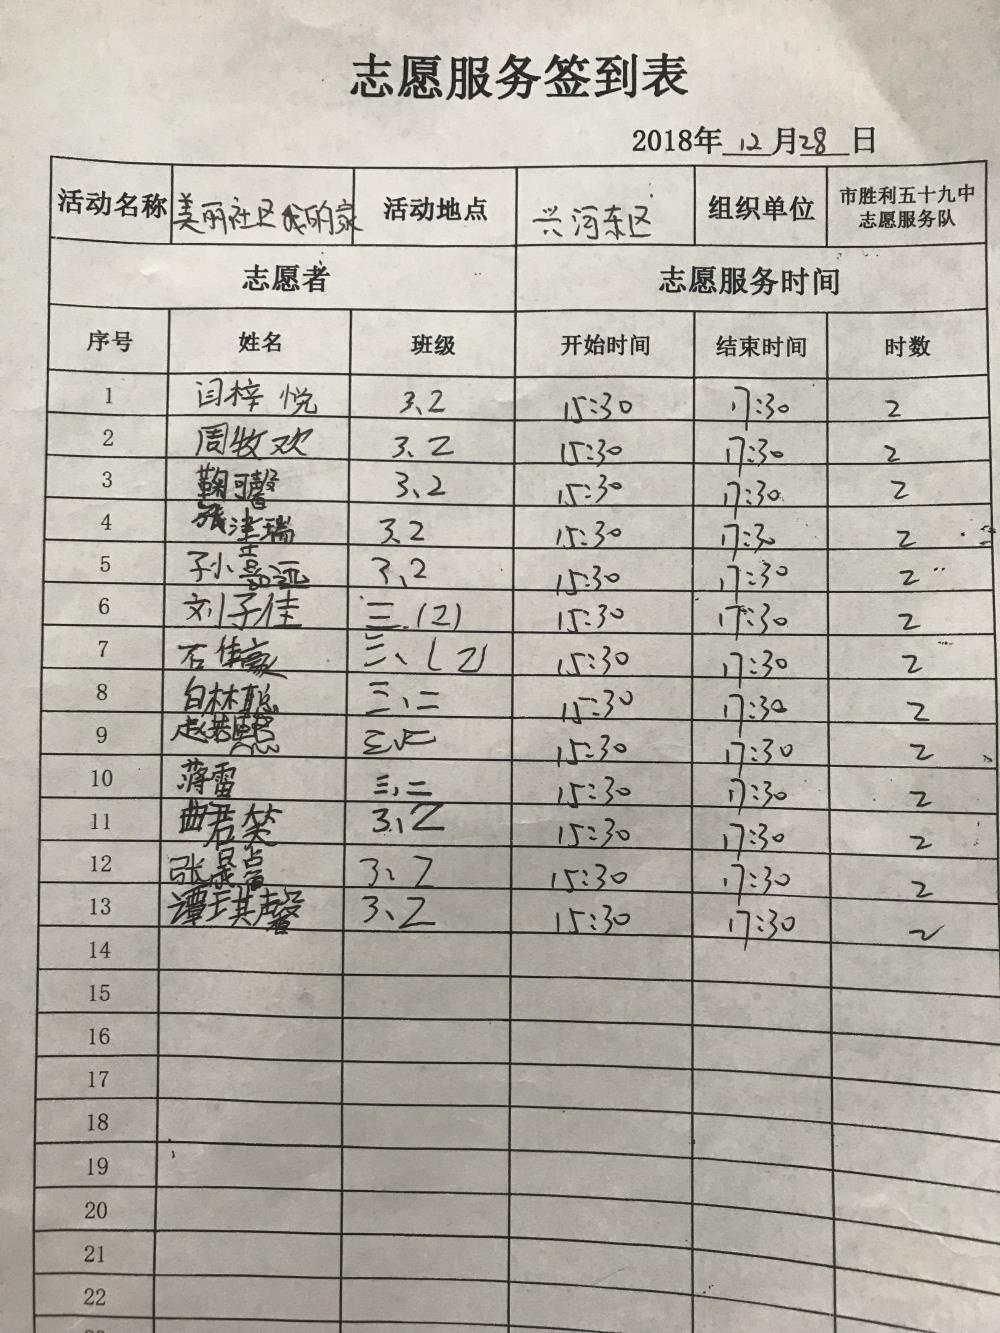 志愿服务签到表
2018年 12 月 28 日
活动名称 美丽社区我的家 活动地点 兴河东区 组织单位 市胜利五十九中
志愿服务队
志愿者 志愿服务时间
序号 姓名 班级 开始时间 结束时间 时数
1 闫梓悦 3.2 15:30 17:30 2
2 周牧欢 3.2 15:30 17:30 2
3 鞠可馨 3、2 15:30 17:30 2
4 张津瑞 3.2 15:30 17:30 2
5 3、2 15:30 17:30 2
6 刘子佳 三.(2) 15:30 17:30 2
7 石佳豪 三、(2) 15:30 17:30 2
8 白林聪 三、二 15:30 17:30 2
9 赵若熙 三、二 15:30 17:30 2
10 蒋雷 三、二 15:30 17:30 2
11 曲君笑 3、2 15:30 17:30 2
12 3、2 15:30 17:30 2
13 谭琪馨 3、2 15:30 17:30 2
14
15
16
17
18
19
20
21
22